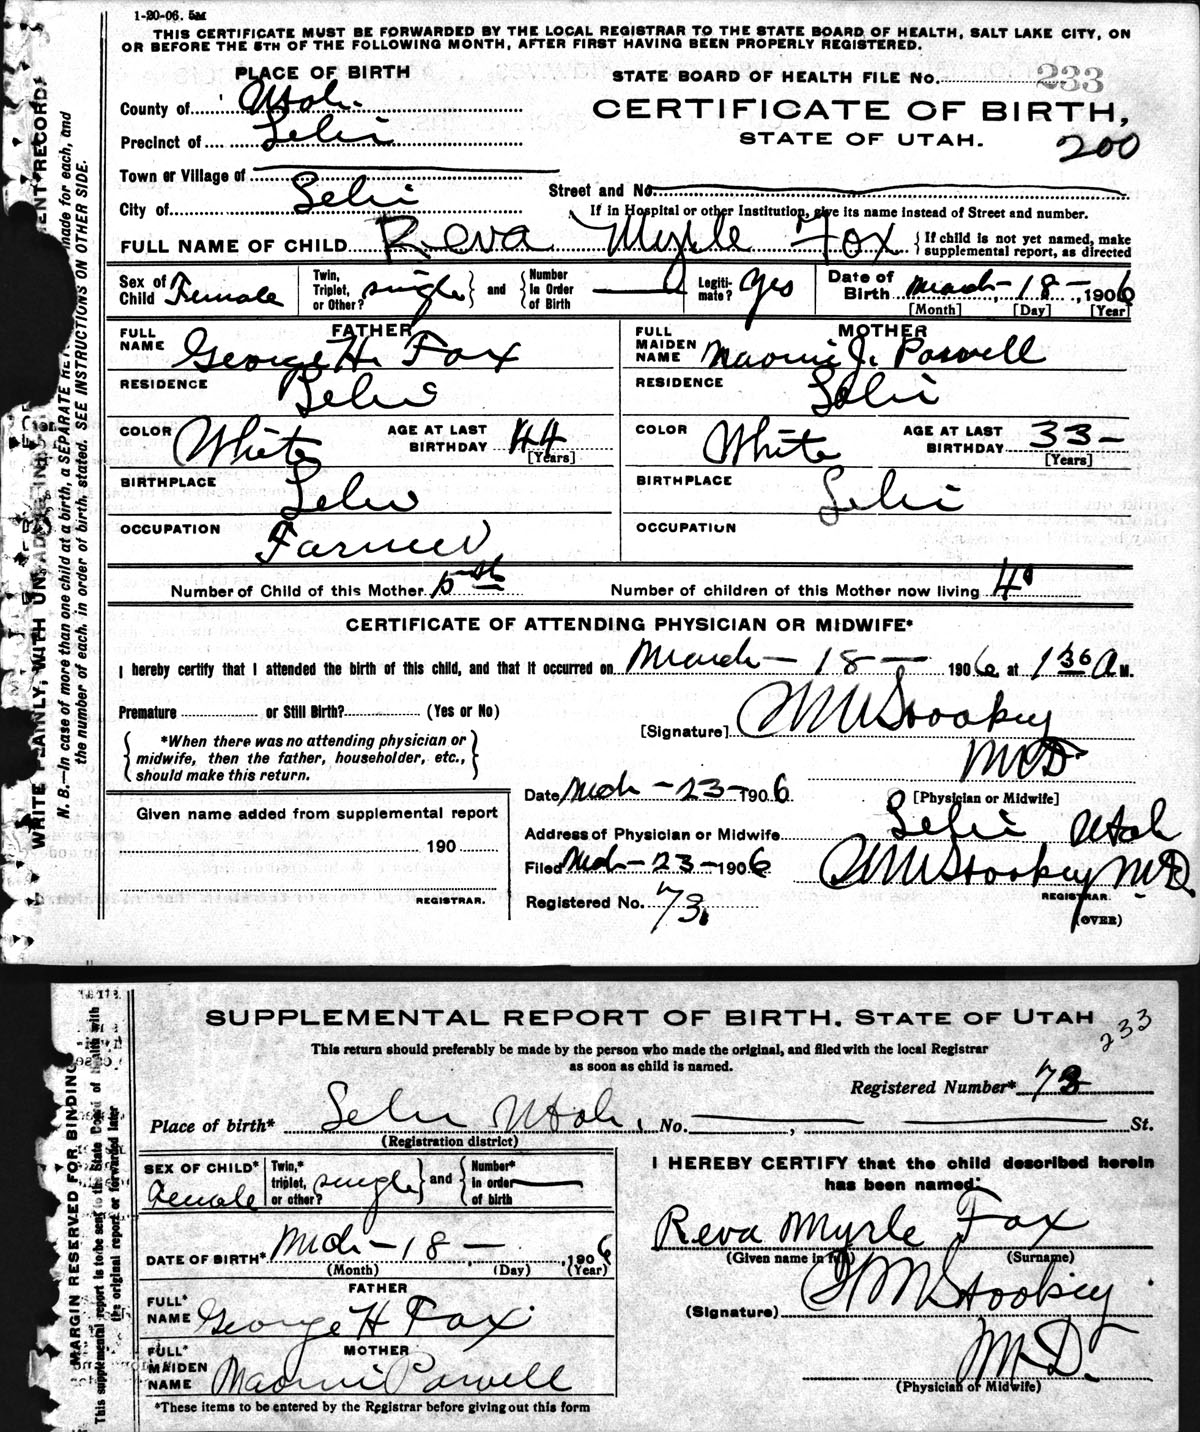 1-20-06. 5M
THIS CERTIFICATE MUST BE FORWARDED BY THE LOCAL REGISTRAR TO THE STATE BOARD OF HEALTH, SALT LAKE CITY, ON
OR BEFORE THE 5TH OF THE FOLLOWING MONTH, AFTER FIRST HAVING BEEN PROPERLY REGISTERED.
PLACE OF BIRTH
STATE BOARD OF HEALTH FILE No. 233
County of Utah.
CERTIFICATE OF BIRTH,
Precinct of Lehi
STATE OF UTAH.
200
Town or Village of
City of Lehi
Street and No.
If in Hospital or other Institution, give its name instead of Street and number.
FULL NAME OF CHILD Reva Myrle Fox { If child is not yet named, make supplemental report, as directed
Sex of Child Female Twin, Triplet, or Other? single } and { Number In Order of Birth Legiti-mate? Yes Date of Birth March-18-, 1906
[Month] [Day] [Year]
FATHER
FULL NAME George H. Fox
MOTHER
FULL MAIDEN NAME Naomi J. Powell
RESIDENCE Lehi
RESIDENCE Lehi
COLOR White AGE AT LAST BIRTHDAY 44 [Years]
COLOR White AGE AT LAST BIRTHDAY 33- [Years]
BIRTHPLACE Lehi
BIRTHPLACE Lehi
OCCUPATION Farmer
OCCUPATION
Number of Child of this Mother 5th Number of children of this Mother now living 4
CERTIFICATE OF ATTENDING PHYSICIAN OR MIDWIFE*
I hereby certify that I attended the birth of this child, and that it occurred on March-18- 1906, at 1 30 A M.
Premature or Still Birth? (Yes or No)
[Signature] Stookey
M.D.
*When there was no attending physician or
midwife, then the father, householder, etc.,
should make this return.
[Physician or Midwife]
Date Mch-23-1906
Address of Physician or Midwife Lehi Utah
Filed Mch-23-1906 Stookey M.D.
REGISTRAR.
Registered No. 73.
(OVER)
Given name added from supplemental report
190
REGISTRAR.
WRITE PLAINLY, WITH UN
ENT RECORD
N. B.—In case of more than one child at a birth, a SEPARATE RE made for each, and
the number of each, in order of birth, stated. SEE INSTRUCTIONS ON OTHER SIDE.
SUPPLEMENTAL REPORT OF BIRTH. STATE OF UTAH
233
This return should preferably be made by the person who made the original, and filed with the local Registrar
as soon as child is named.
Registered Number* 73
Place of birth* Lehi Utah, No. , St.
(Registration district)
SEX OF CHILD* Female Twin,* triplet, or other? single } and { Number* in order of birth
I HEREBY CERTIFY that the child described herein
has been named:
Reva Myrle Fox
(Given name in full) (Surname)
DATE OF BIRTH* Mch-18-, 1906
(Month) (Day) (Year)
FATHER
FULL* NAME George H Fox
(Signature) Stookey
M.D.
(Physician or Midwife)
MOTHER
FULL* MAIDEN NAME Naomi Powell
*These items to be entered by the Registrar before giving out this form
MARGIN RESERVED FOR BINDING
This supplemental report is to be sent to the State Board of Health with
the original report or forwarded later